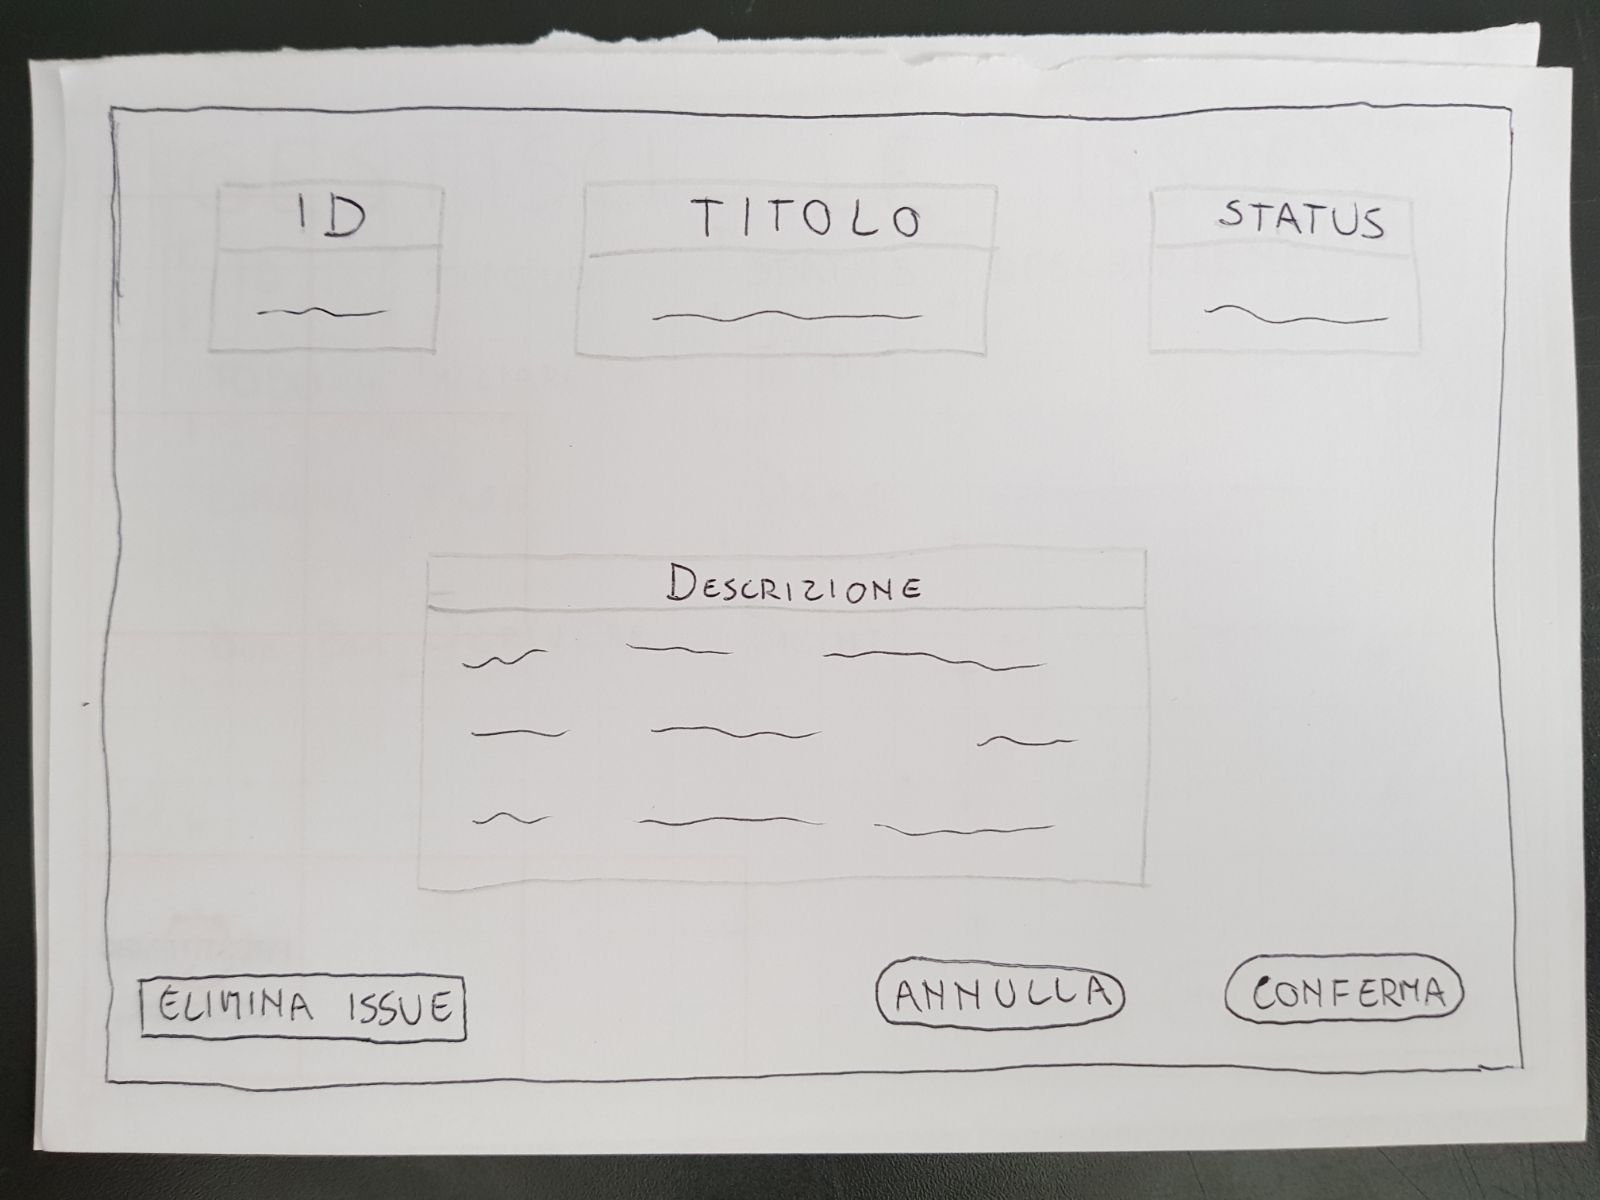 ID
TITOLO
STATUS
DESCRIZIONE
ELIMINA ISSUE
ANNULLA
CONFERMA